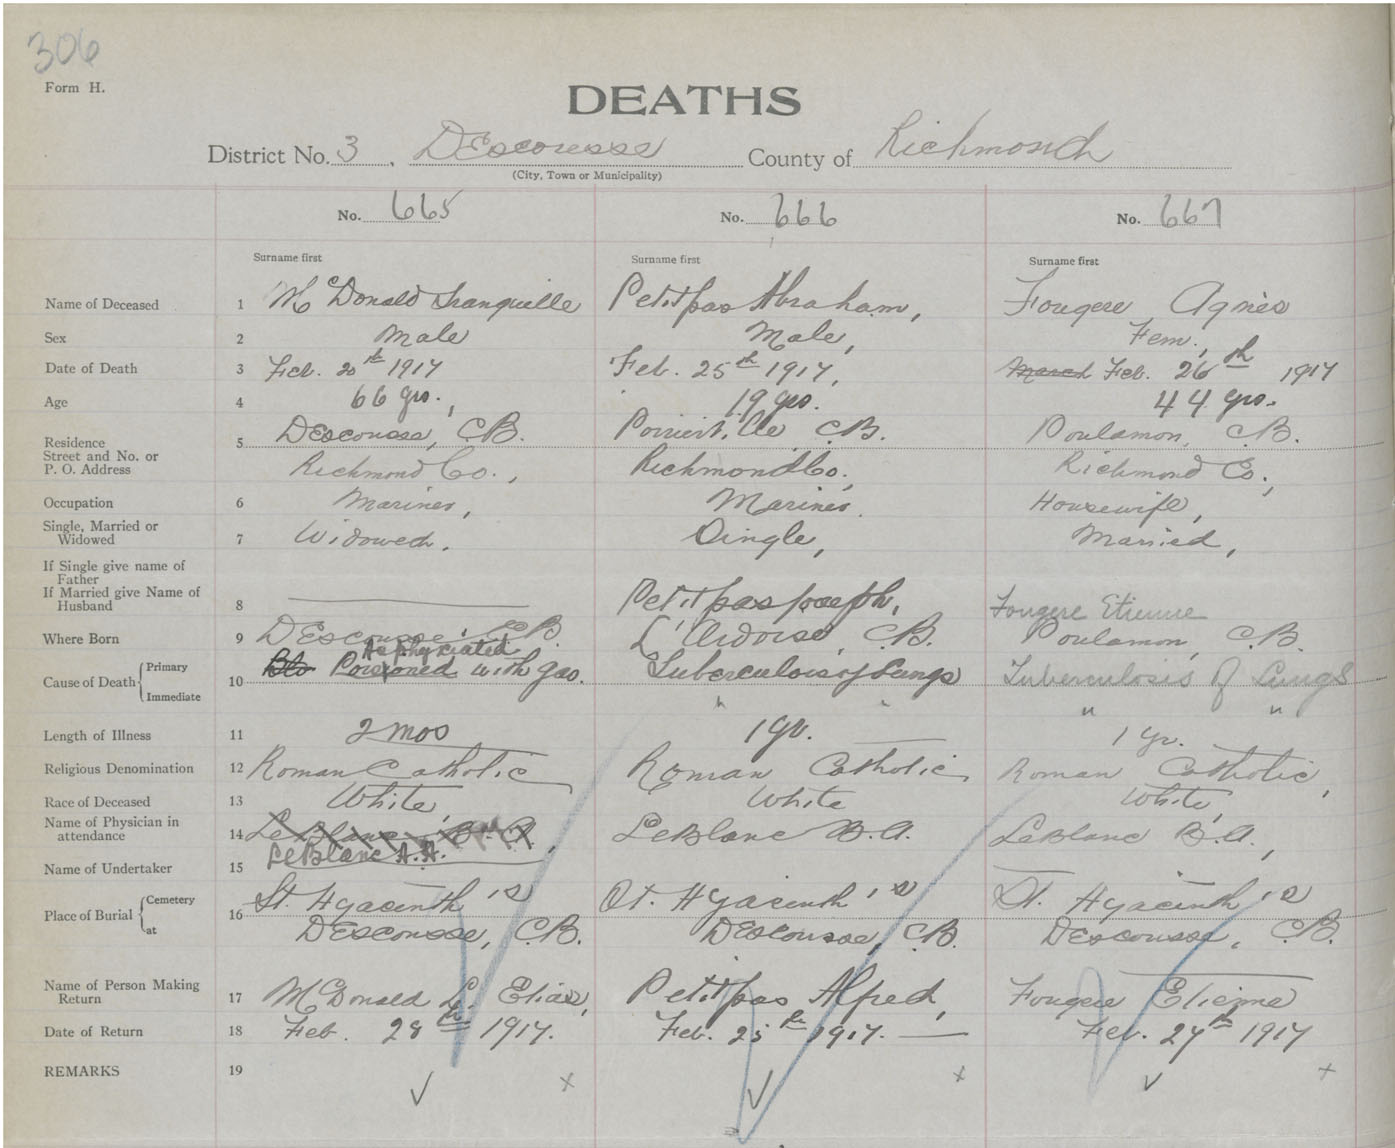 306
Form H.
DEATHS
District No. 3, DEscousse County of Richmond
(City, Town or Municipality)
No. 665 No. 666 No. 667
Surname first Surname first Surname first
Name of Deceased 1 McDonald Tranquille Petitpas Abraham, Fougere Agnes
Sex 2 Male Male, Fem.,
Date of Death 3 Feb. 20th 1917 Feb. 25th 1917, March Feb. 26th 1917
Age 4 66 yrs., 19 yrs. 44 yrs.
Residence 5 DEscousse, CB. CB. Poulamon, CB.
Street and No. or
P. O. Address Richmond Co., Richmond Co., Richmond Co.,
Occupation 6 Mariner, Mariner. Housewife,
Single, Married or
Widowed 7 Widowed. Single, Married,
If Single give name of
Father
If Married give Name of
Husband 8 Petitpas Joseph, Fougere Etienne
Where Born 9 DEscousse, CB. L'Ardoise, CB. Poulamon, CB.
Asphyxiated
Cause of Death Primary 10 Poisoned with gas. Tuberculois of Lungs Tuberculosis of Lungs
Immediate " " " "
Length of Illness 11 2 mos 1 yr. 1 yr.
Religious Denomination 12 Roman Catholic Roman Catholic, Roman Catholic,
Race of Deceased 13 White, White White,
Name of Physician in
attendance 14 LeBlanc B.A., LeBlanc B.A. LeBlanc B.A.,
LeBlanc A.A.
Name of Undertaker 15
Place of Burial Cemetery 16 St. Hyacinth's St. Hyacinth's St. Hyacinth's
at DEscousse, CB. DEscousse, CB. DEscousse, CB.
Name of Person Making
Return 17 McDonald Elias, Petitpas Alfred, Fougere Etienne
Date of Return 18 Feb. 28th 1917. Feb. 25th 1917. Feb. 27th 1917
REMARKS 19